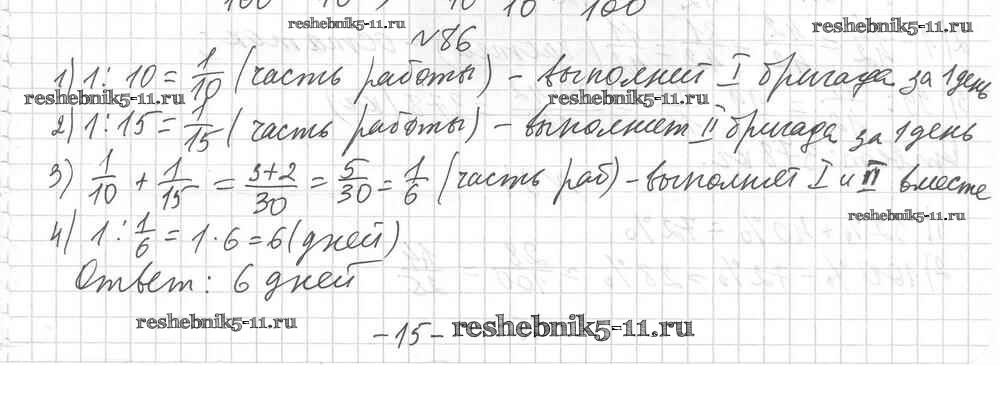 100 10 10 10 100
reshebnik5-11.ru reshebnik5-11.ru
№86
1) 1 : 10 = 1/10 (часть работы) - выполнит I бригада за 1 день
reshebnik5-11.ru reshebnik5-11.ru
2) 1 : 15 = 1/15 (часть работы) - выполнит II бригада за 1 день
3) 1/10 + 1/15 = 3+2/30 = 5/30 = 1/6 (часть раб) - выполнит I и II вместе
reshebnik5-11.ru
4) 1 : 1/6 = 1 · 6 = 6 (дней)
Ответ: 6 дней
reshebnik5-11.ru
- 15 - reshebnik5-11.ru